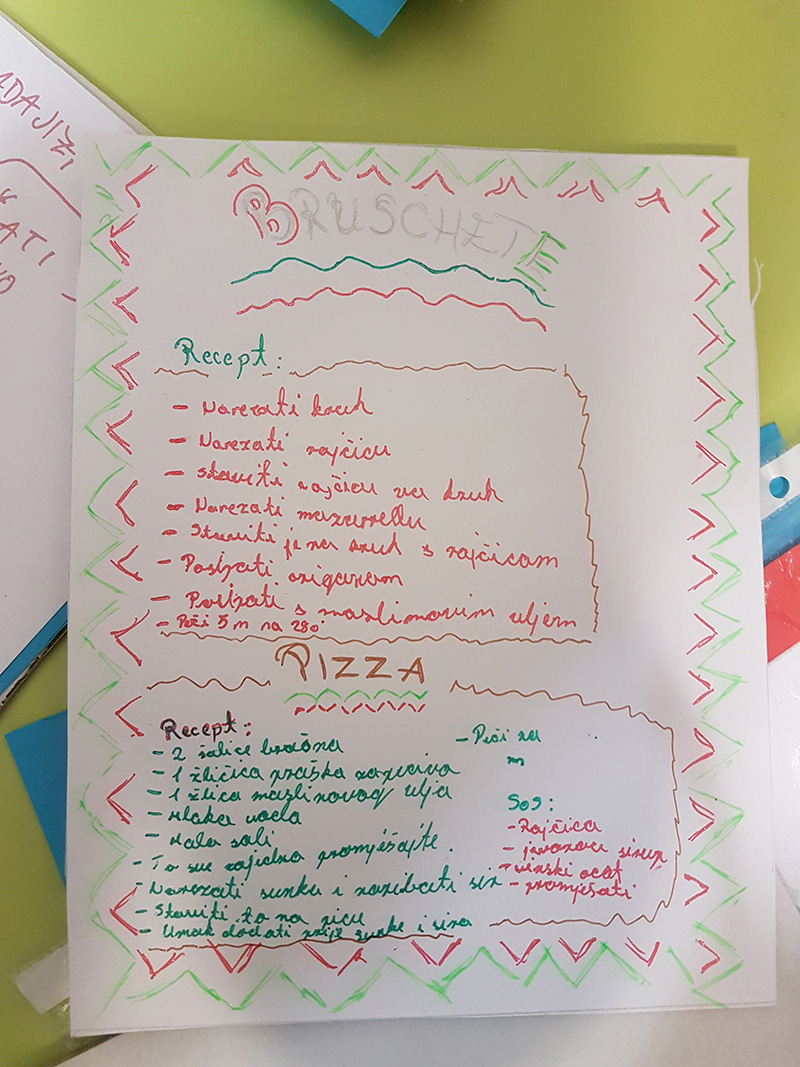 DAJIŽI
ATI
BRUSCHETE
Recept:
- Narezati kruh
- Narezati rajčicu
- Staviti rajčicu na kruh
- Narezati mazarellu
- Staviti ju na kruh s rajčicom
- Posipati origanom
- Posipati s maslinovim uljem
- Peči 5 m na 280°
PIZZA
Recept:
- 2 šalice brašna
- 1 žličica praška
- 1 žlica maslinovog ulja
- Mlaka voda
- Malo soli
- To sve zajedno promješajte.
- Narezati šunku i naribati sir
- Staviti to na picu
- Umak dodati prije šunke i sira
- Peči na
m
Sos:
- Rajčica
- javorov sirup
- vinski ocat
- promješati